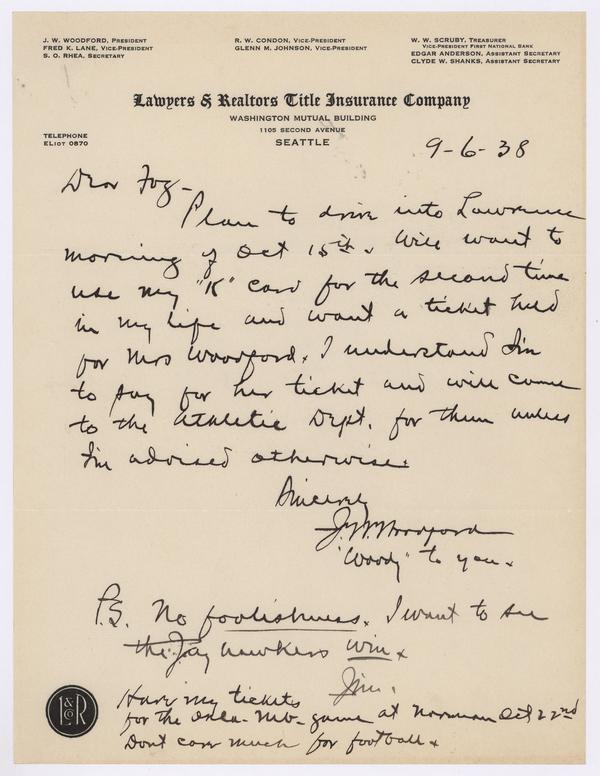 J. W. WOODFORD, PRESIDENT
FRED K. LANE, VICE-PRESIDENT
S. O. RHEA, SECRETARY
R. W. CONDON, VICE-PRESIDENT
GLENN M. JOHNSON, VICE-PRESIDENT
W. W. SCRUBY, TREASURER
VICE-PRESIDENT FIRST NATIONAL BANK
EDGAR ANDERSON, ASSISTANT SECRETARY
CLYDE W. SHANKS, ASSISTANT SECRETARY
Lawyers & Realtors Title Insurance Company
WASHINGTON MUTUAL BUILDING
1105 SECOND AVENUE
SEATTLE
TELEPHONE
ELIOT 0870
9-6-38
Dear Fog-
Plan to drive into Lawrence
morning of Oct 15th. Will want to
use my "K" card for the second time
in my life and want a ticket held
for Mrs Woodford. I understand I'm
to pay for her ticket and will come
to the Athletic Dept. for them unless
I'm advised otherwise.
Sincerely
J. W. Woodford
"Woody" to you.
P.S. No foolishness. I want to see
the Jay hawkers win.
Jim.
Have my tickets
for the Okla.- Nb- game at Norman Oct 22nd
Dont care much for football.
L & R
Co